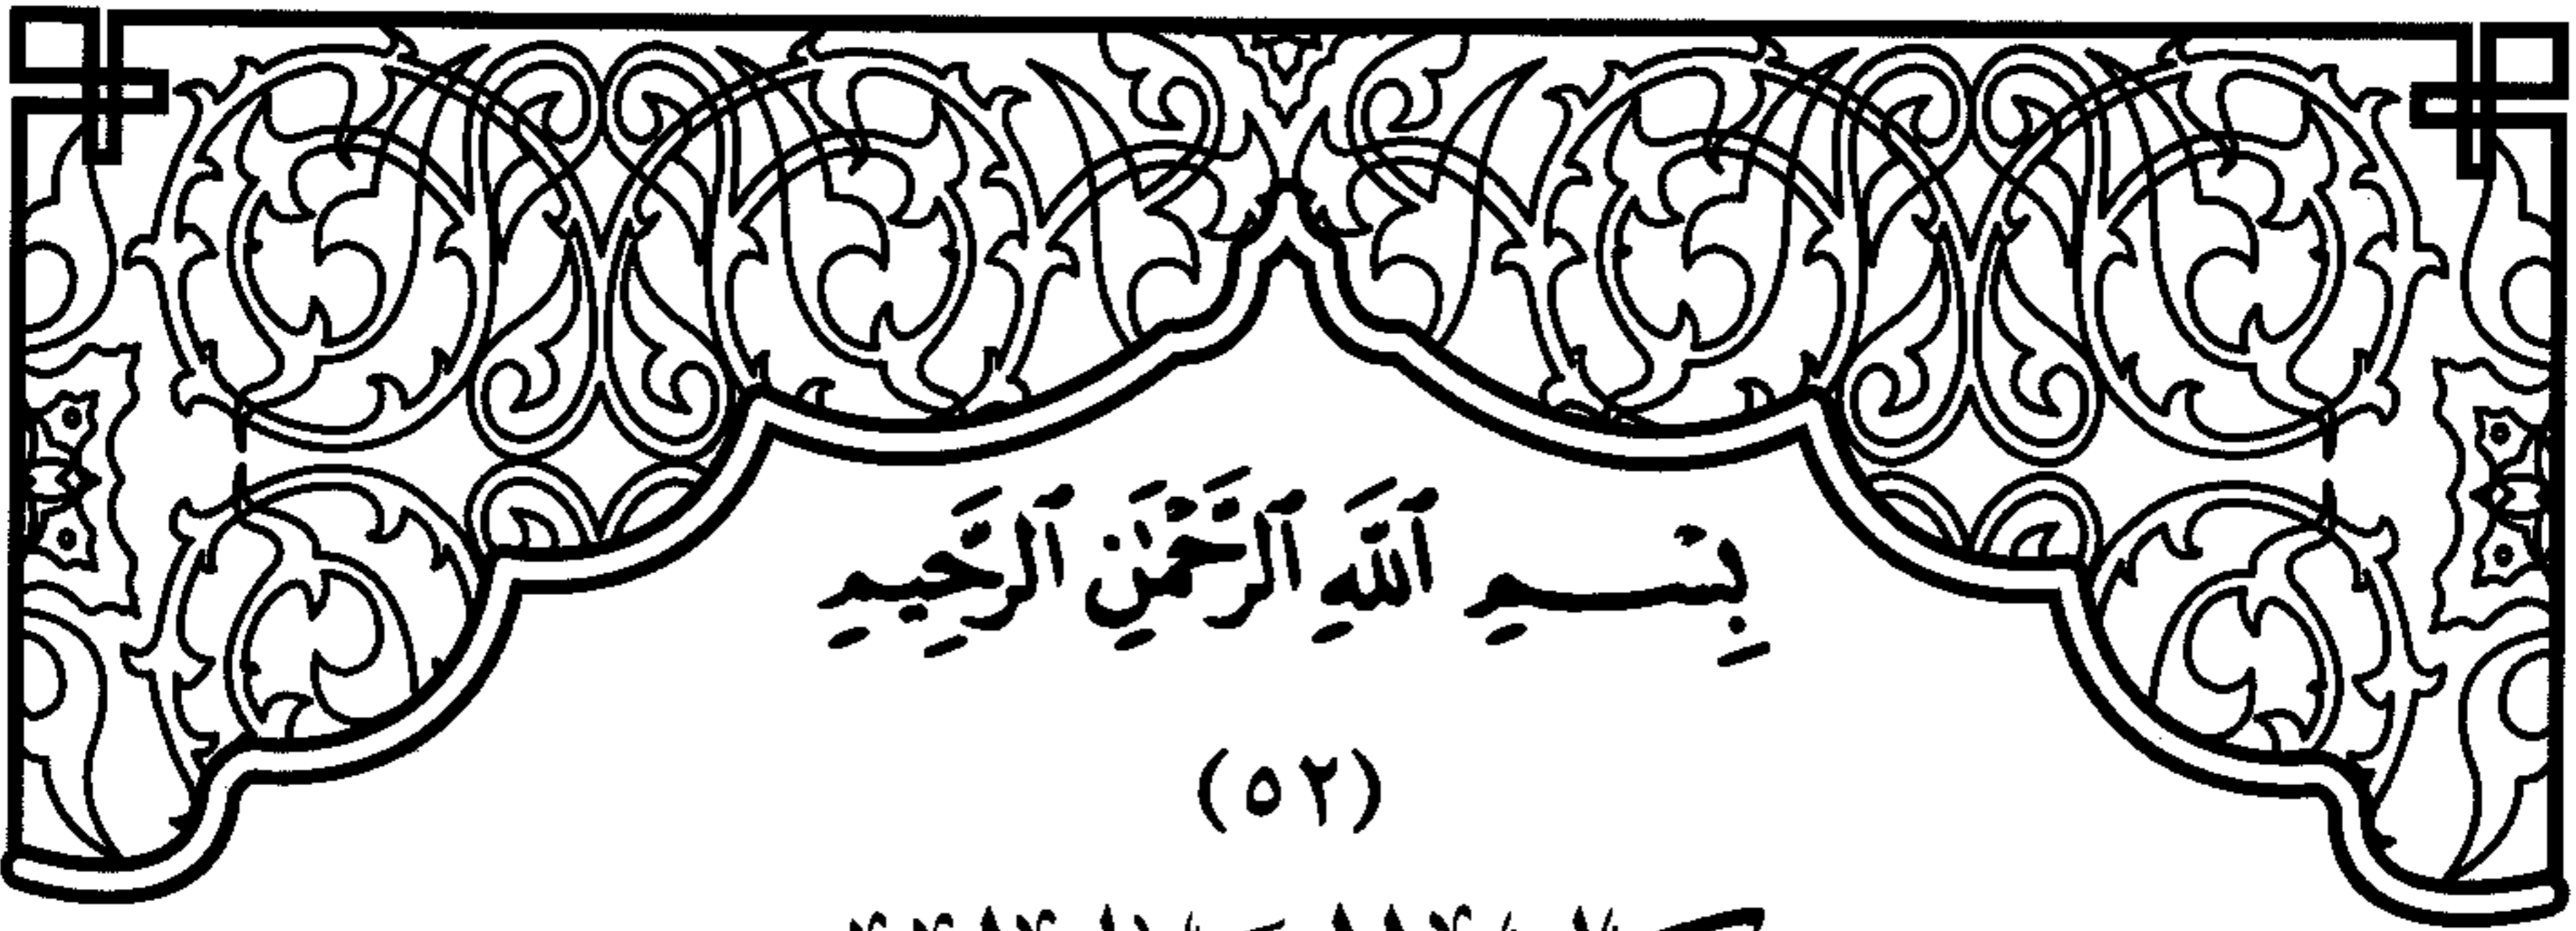 بِسْمِ ٱللَّهِ ٱلرَّحْمَٰنِ ٱلرَّحِيمِ
(٥٢)